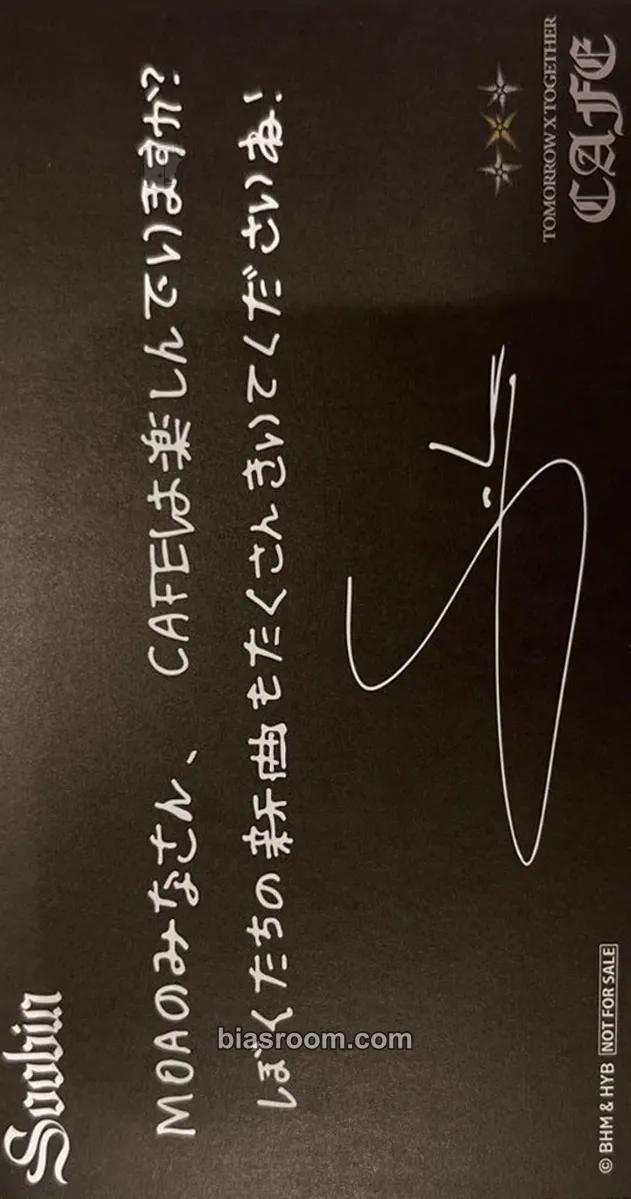 Soobin
MOAのみなさん、 CAFEは楽しんでいますか?
ぼくたちの新曲もたくさんきいてくださいね!
TOMORROW X TOGETHER
CAFE
© BHM & HYB NOT FOR SALE
biasroom.com